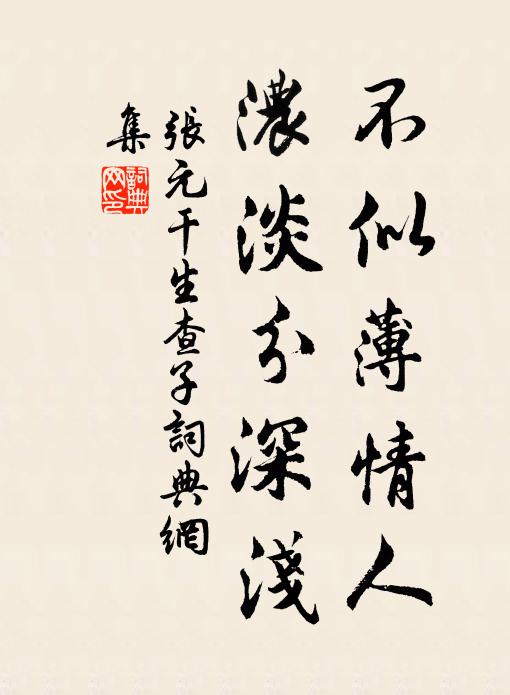 不似薄情人
濃淡分深淺
張元干生查子詞典網
集
詞典網印